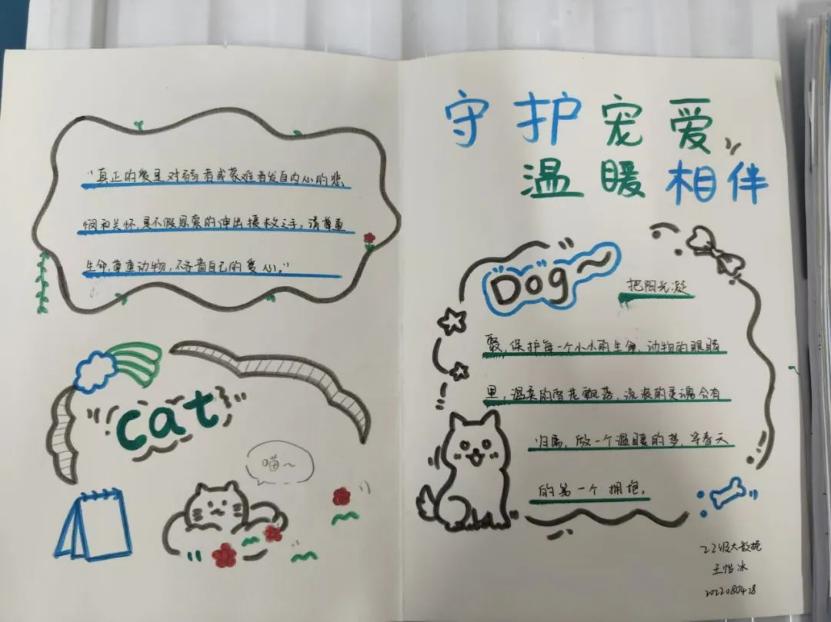 "真正的爱是对弱者或蒙难者发自内心的悲
悯和关怀,是不假思索的伸出援救之手,请尊重
生命,尊重动物,不吝啬自己的爱心。"
cat
喵~
守护宠爱
温暖相伴
Dog
把阳光凝
聚,保护每一个小小的生命,动物的眼睛
里,温柔的雪花飘落,流浪的灵魂会有
归属,做一个温暖的梦,等春天
的另一个拥抱。
22级大数据